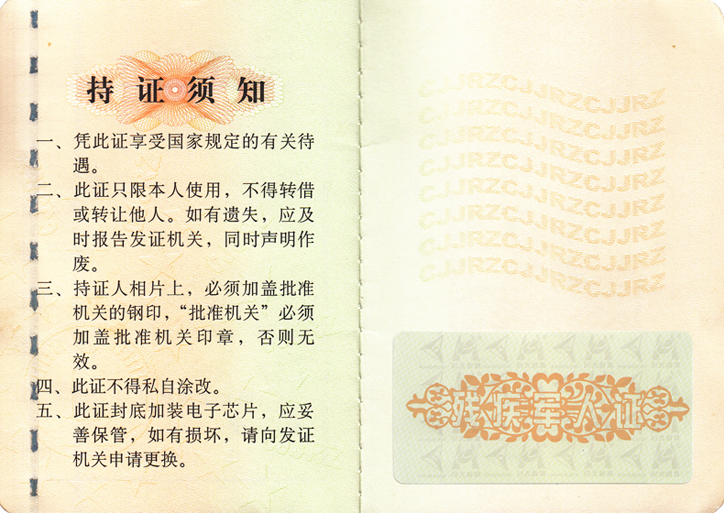 持证须知
一、凭此证享受国家规定的有关待
遇。
二、此证只限本人使用，不得转借
或转让他人。如有遗失，应及
时报告发证机关，同时声明作
废。
三、持证人相片上，必须加盖批准
机关的钢印，“批准机关”必须
加盖批准机关印章，否则无
效。
四、此证不得私自涂改。
五、此证封底加装电子芯片，应妥
善保管，如有损坏，请向发证
机关申请更换。
CJJRZCJJRZCJJRZ
CJJRZCJJRZCJJRZ
CJJRZCJJRZCJJRZ
CJJRZCJJRZCJJRZ
CJJRZCJJRZCJJRZ
CJJRZCJJRZCJJRZ
CJJRZCJJRZCJJRZ
CJJRZCJJRZCJJRZ
残疾军人证